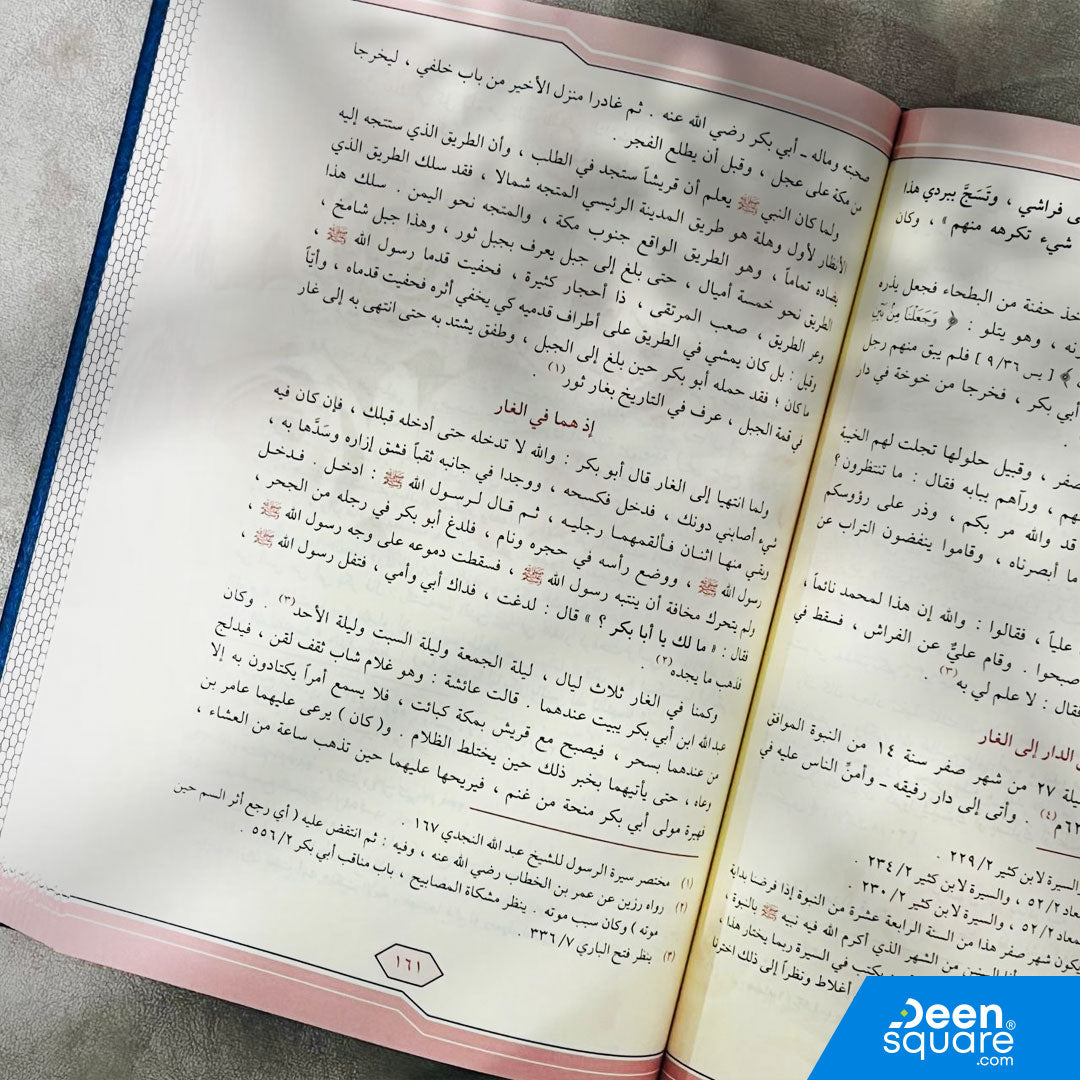 ى فراشي ، وتَسَجَّ ببردي هذا
شيء تكرهه منهم » ، وكان
خذ حفنة من البطحاء فجعل يذره
نه ، وهو يتلو : ﴿ وَجَعَلْنَا مِنْ بَيْنِ
﴾ [ يس ٩/٣٦ ] فلم يبق منهم رجل
أبي بكر ، فخرجا من خوخة في دار
صفر ، وقبيل حلولها تجلت لهم الخيبة
هم ، ورآهم ببابه فقال : ما تنتظرون ؟
قد والله مر بكم ، وذر على رؤوسكم
ما أبصرناه ، وقاموا ينفضون التراب عن
علياً ، فقالوا : والله إن هذا لمحمد نائماً ،
صبحوا . وقام عليٌّ عن الفراش ، فسقط في
فقال : لا علم لي به(٣) .
الدار إلى الغار
يلة ٢٧ من شهر صفر سنة ١٤ من النبوة الموافق
٦٢م(٤) . وأتى إلى دار رفيقه ـ وأمنِّ الناس عليه في
السيرة لابن كثير ٢/ ٢٢٩ .
معاد ٢/ ٥٢ ، والسيرة لابن كثير ٢/ ٢٣٤ .
معاد ٢/ ٥٢ ، والسيرة لابن كثير ٢/ ٢٣٠ .
يكون شهر صفر هذا من السنة الرابعة عشرة من النبوة إذا فرضنا بداية
من الشهر الذي أكرم الله فيه نبيه ﷺ بالنبوة ،
يكتب في السيرة ربما يختار هذا ،
أغلاط ونظراً إلى ذلك اخترنا
صحبته وماله ـ أبي بكر رضي الله عنه . ثم غادرا منزل الأخير من باب خلفي ، ليخرجا
من مكة على عجل ، وقبل أن يطلع الفجر .
ولما كان النبي ﷺ يعلم أن قريشاً ستجد في الطلب ، وأن الطريق الذي ستتجه إليه
الأنظار لأول وهلة هو طريق المدينة الرئيسي المتجه شمالا ، فقد سلك الطريق الذي
يضاده تماماً ، وهو الطريق الواقع جنوب مكة ، والمتجه نحو اليمن . سلك هذا
الطريق نحو خمسة أميال ، حتى بلغ إلى جبل يعرف بجبل ثور ، وهذا جبل شامخ ،
وعر الطريق ، صعب المرتقى ، ذا أحجار كثيرة ، فحفيت قدما رسول الله ﷺ ،
وقيل : بل كان يمشي في الطريق على أطراف قدميه كي يخفي أثره فحفيت قدماه ، وأيّاً
ما كان ؛ فقد حمله أبو بكر حين بلغ إلى الجبل ، وطفق يشتد به حتى انتهى به إلى غار
في قمة الجبل ، عرف في التاريخ بغار ثور(١) .
إذ هما في الغار
ولما انتهيا إلى الغار قال أبو بكر : والله لا تدخله حتى أدخله قبلك ، فإن كان فيه
شيء أصابني دونك ، فدخل فكسحه ، ووجدا في جانبه ثقباً فشق إزاره وسَدَّها به ،
وبقي منها اثنان فألقمهما رجليه ، ثم قال لرسول الله ﷺ : ادخل . فدخل
رسول الله ﷺ ، ووضع رأسه في حجره ونام ، فلدغ أبو بكر في رجله من الجحر ،
ولم يتحرك مخافة أن ينتبه رسول الله ﷺ ، فسقطت دموعه على وجه رسول الله ﷺ ،
فقال : « ما لك يا أبا بكر ؟ » قال : لدغت ، فداك أبي وأمي ، فتفل رسول الله ﷺ ،
فذهب ما يجده(٢) .
وكمنا في الغار ثلاث ليال ، ليلة الجمعة وليلة السبت وليلة الأحد(٣) . وكان
عبد الله ابن أبي بكر يبيت عندهما . قالت عائشة : وهو غلام شاب ثقف لقن ، فيدلج
من عندهما بسحر ، فيصبح مع قريش بمكة كبائت ، فلا يسمع أمراً يكتادون به إلا
وعاه ، حتى يأتيهما بخبر ذلك حين يختلط الظلام . و( كان ) يرعى عليهما عامر بن
فهيرة مولى أبي بكر منحة من غنم ، فيريحها عليهما حين تذهب ساعة من العشاء ،
(١) مختصر سيرة الرسول للشيخ عبد الله النجدي ١٦٧ .
(٢) رواه رزين عن عمر بن الخطاب رضي الله عنه ، وفيه : ثم انتفض عليه ( أي رجع أثر السم حين
موته ) وكان سبب موته . ينظر مشكاة المصابيح ، باب مناقب أبي بكر ٢/ ٥٥٦ .
(٣) ينظر فتح الباري ٧/ ٣٣٦ .
١٦١
Deen
square®
.com